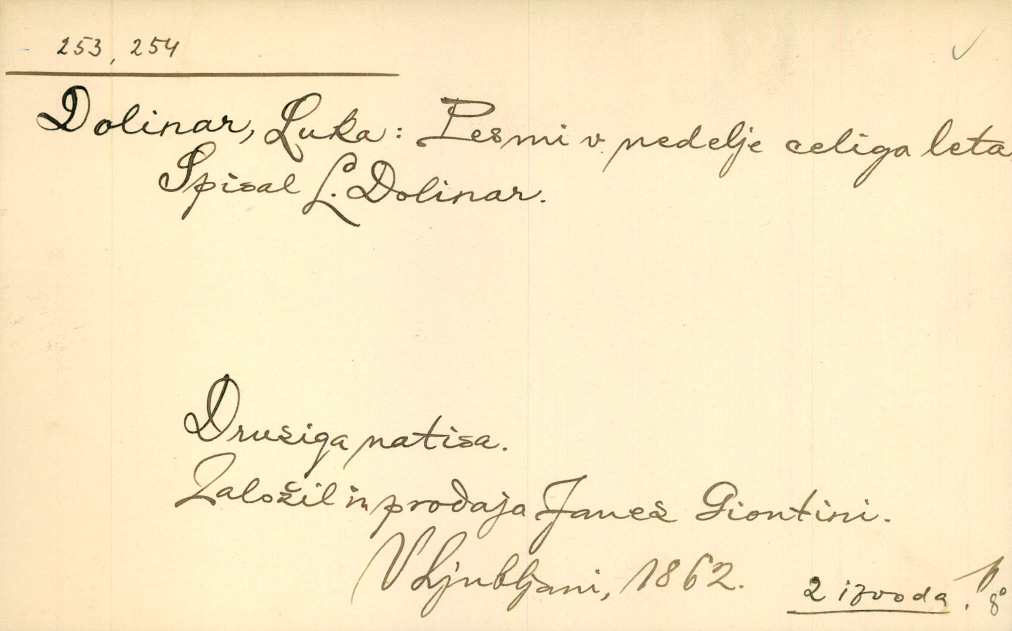 253, 254
Dolinar, Luka: Pesmi v nedelje celiga leta
Spisal L. Dolinar.
Drusiga natisa.
Založil in prodaja Janes Giontini.
V Ljubljani, 1862.
2 izvoda. 8°